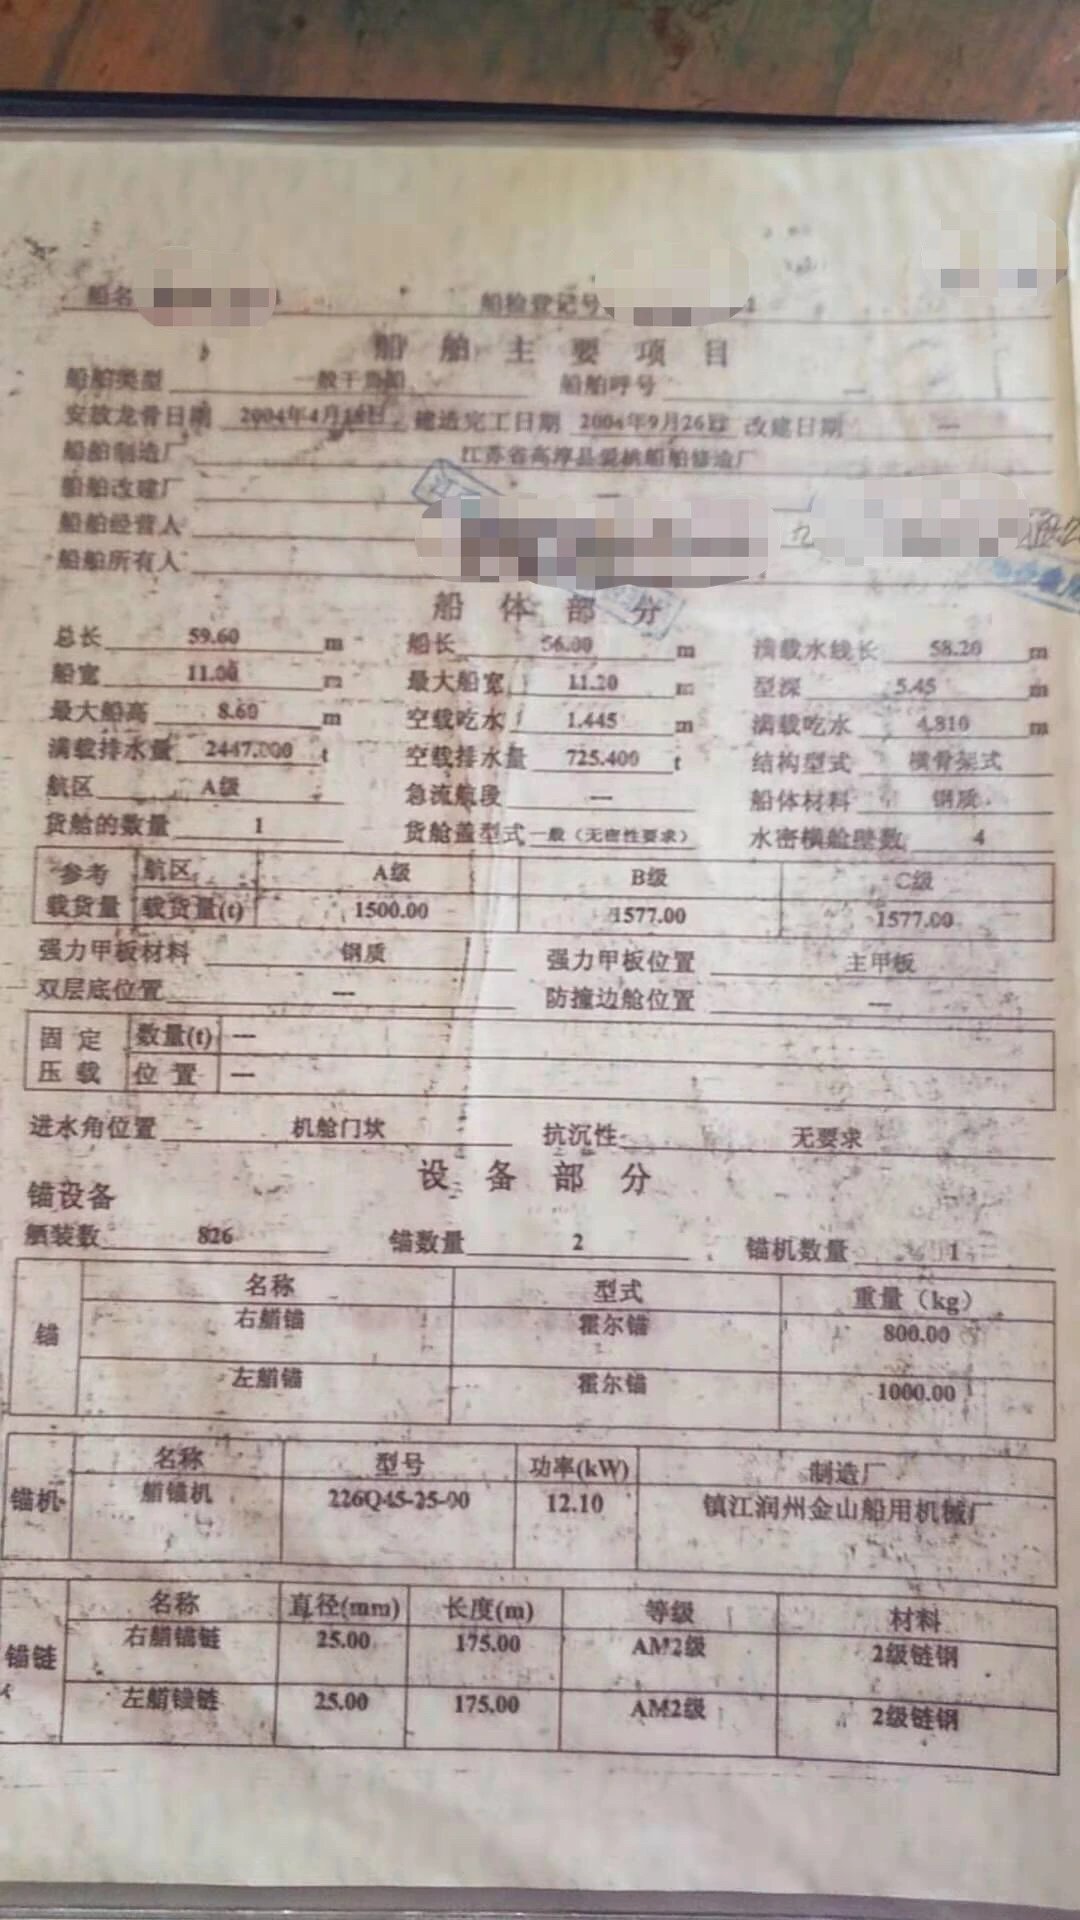 船名
船检登记号
船舶主要项目
船舶类型 一般干货船 船舶呼号 —
安放龙骨日期 2004年4月18日 建造完工日期 2004年9月26日 改建日期 —
船舶制造厂 江苏省高淳县 船舶修造厂
船舶改建厂 —
船舶经营人
船舶所有人
船体部分
总长 59.60 m 船长 56.00 m 满载水线长 58.20 m
船宽 11.00 m 最大船宽 11.20 m 型深 5.45 m
最大船高 8.60 m 空载吃水 1.445 m 满载吃水 4.810 m
满载排水量 2447.000 t 空载排水量 725.400 t 结构型式 横骨架式
航区 A级 急流航段 — 船体材料 钢质
货舱的数量 1 货舱盖型式 一般（无密性要求） 水密横舱壁数 4
参考载货量 航区 A级 B级 C级
载货量(t) 1500.00 1577.00 1577.00
强力甲板材料 钢质 强力甲板位置 主甲板
双层底位置 — 防撞边舱位置 —
固定压载 数量(t) —
位置 —
进水角位置 机舱门坎 抗沉性 无要求
设备部分
锚设备
舾装数 826 锚数量 2 锚机数量 1
锚 名称 型式 重量（kg）
右艏锚 霍尔锚 800.00
左艏锚 霍尔锚 1000.00
锚机 名称 型号 功率(kW) 制造厂
艏锚机 226Q45-25-00 12.10 镇江润州金山船用机械厂
锚链 名称 直径(mm) 长度(m) 等级 材料
右艏锚链 25.00 175.00 AM2级 2级链钢
左艏锚链 25.00 175.00 AM2级 2级链钢